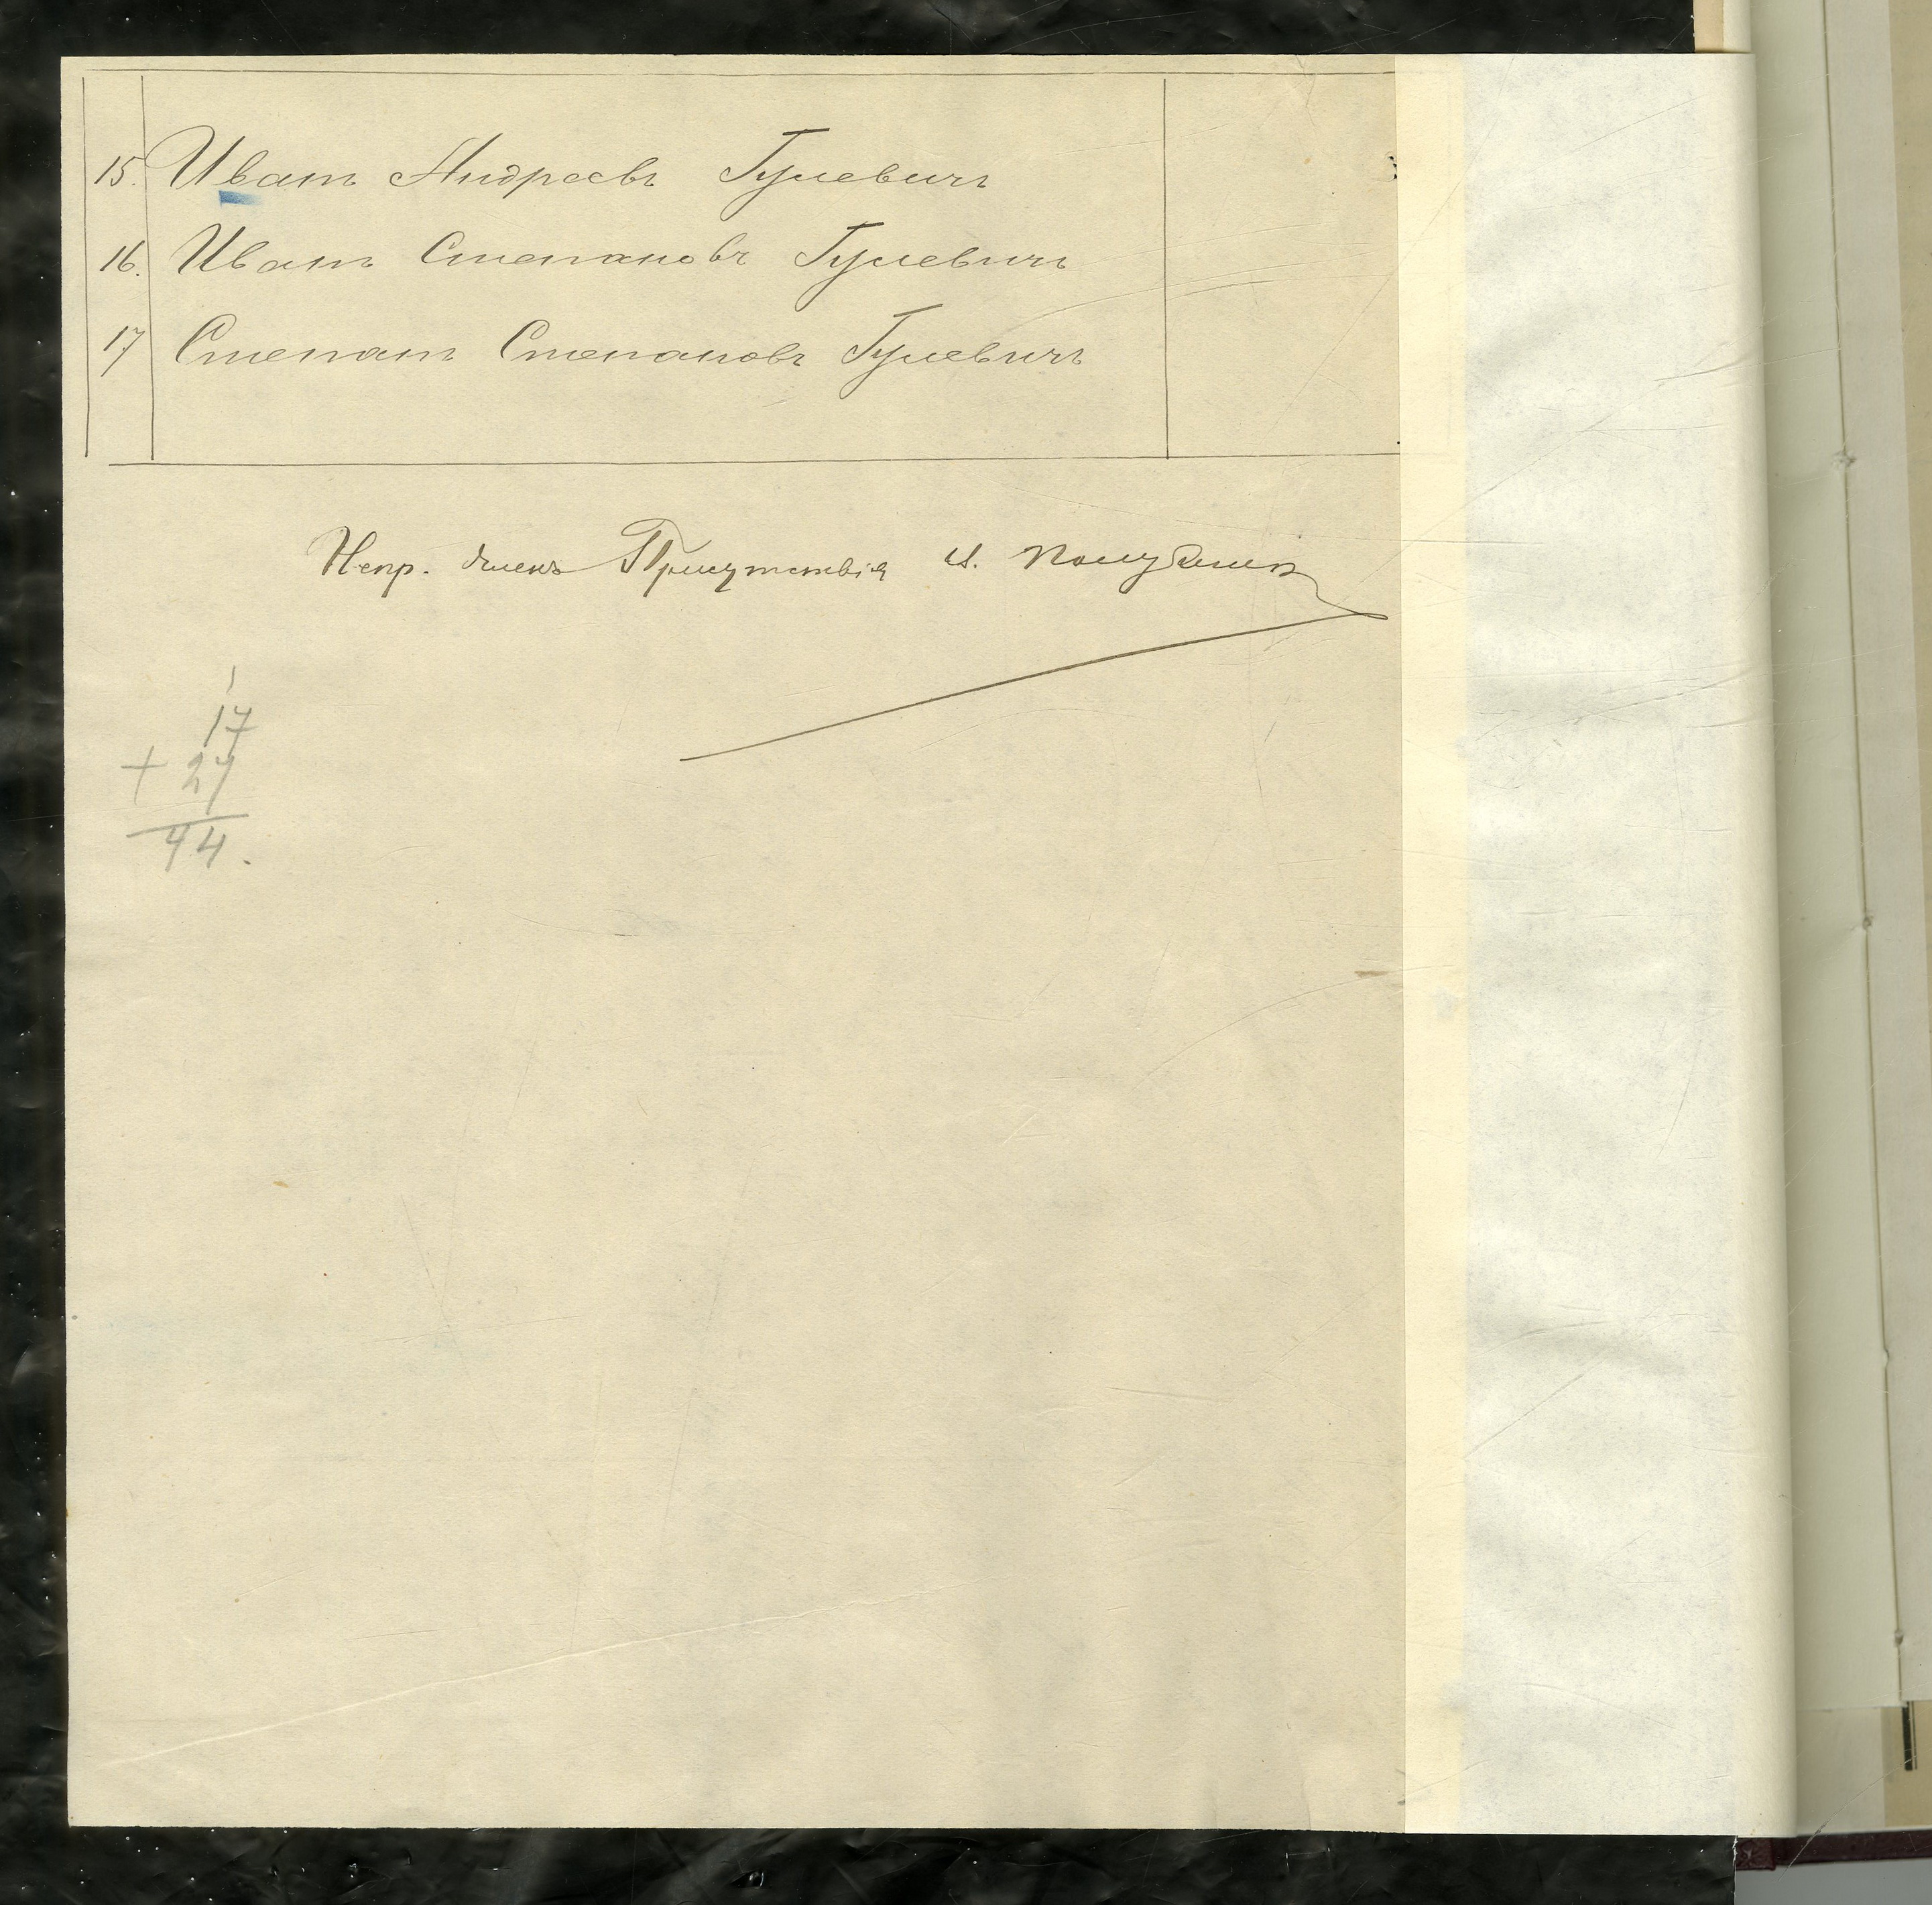 15. Иванъ Андреевъ Гулевичъ
16. Иванъ Степановъ Гулевичъ
17 Степанъ Степановъ Гулевичъ
Непр. Членъ Присутствія И.
17
+ 27
44.